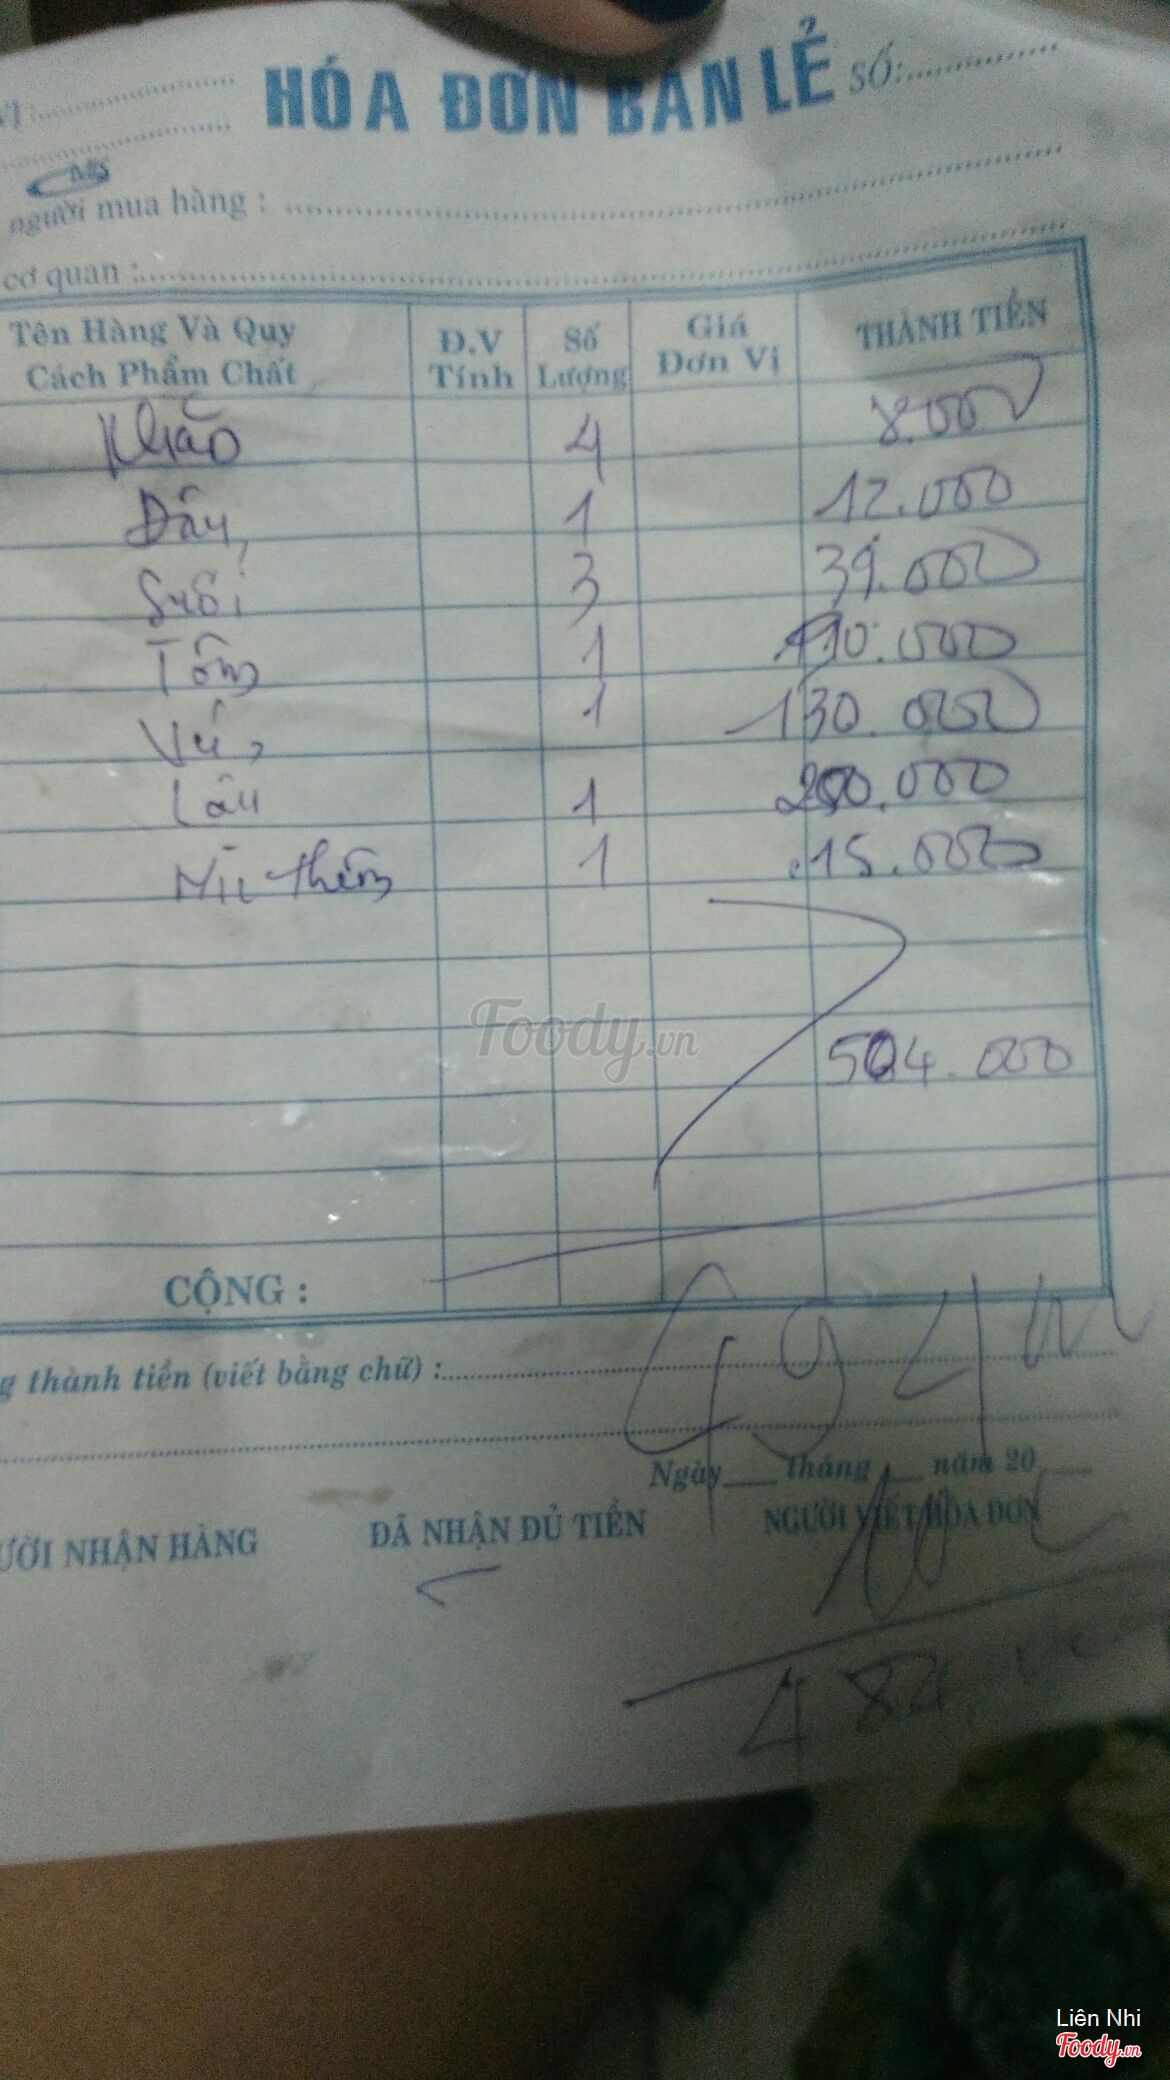 HÓA ĐƠN BÁN LẺ SỐ:
MS
người mua hàng :
cơ quan :
Tên Hàng Và Quy Cách Phẩm Chất Đ.V Tính Số Lượng Giá Đơn Vị THÀNH TIỀN
Khăn 4 8.000
Đậu 1 12.000
Suối 3 39.000
Tôm 1
Vú 1 130.000
Lẩu 1 200.000
Mì thêm 1 15.000
Foody.vn
504.000
CỘNG :
494
g thành tiền (viết bằng chữ) :
Ngày tháng năm 20
ƯỜI NHẬN HÀNG ĐÃ NHẬN ĐỦ TIỀN NGƯỜI VIẾT HÓA ĐƠN
484
Liên Nhi
Foody.vn